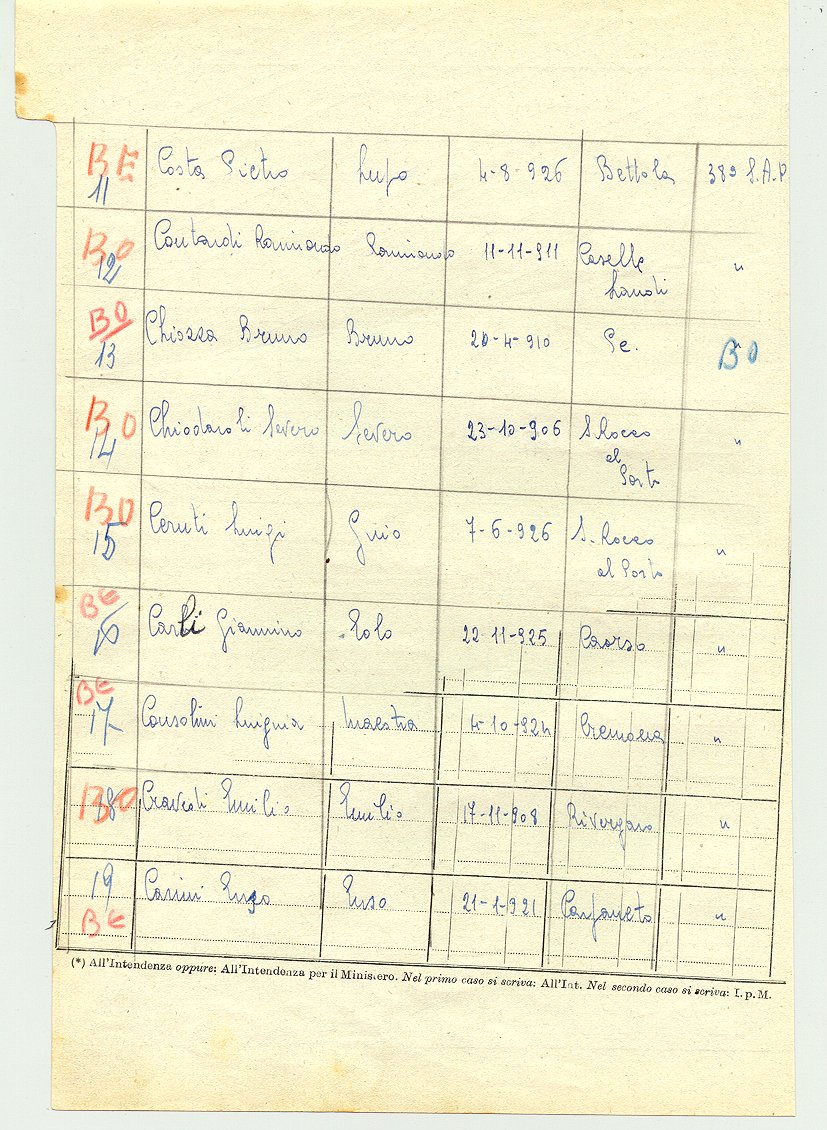 BE 11 Costa Pietro Lupo 4-8-926 Bettola 38ª S.A.P
BO 12 Contardi Raimondo Raimondo 11-11-911 Caselle "
Landi
BO 13 Chiozza Bruno Bruno 20-4-910 Pc. " BO
BO 14 Chiodaroli Severo Severo 23-10-906 S. Rocco "
al
Porto
BO 15 Ceruti Luigi 7-6-926 S. Rocco "
al Porto
BE 16 Carli Giannino Eolo 22-11-925 Caorso "
BE 17 Consolini Luigina Maestra 4-10-924 Cremona "
BO 18 Cravedi Emilio Emilio 17-11-908 Rivergaro "
19 Casini Enzo Enzo 21-1-921 Carpaneto "
BE
(*) All'Intendenza oppure: All'Intendenza per il Ministero. Nel primo caso si scriva: All'Int. Nel secondo caso si scriva: I. p. M.